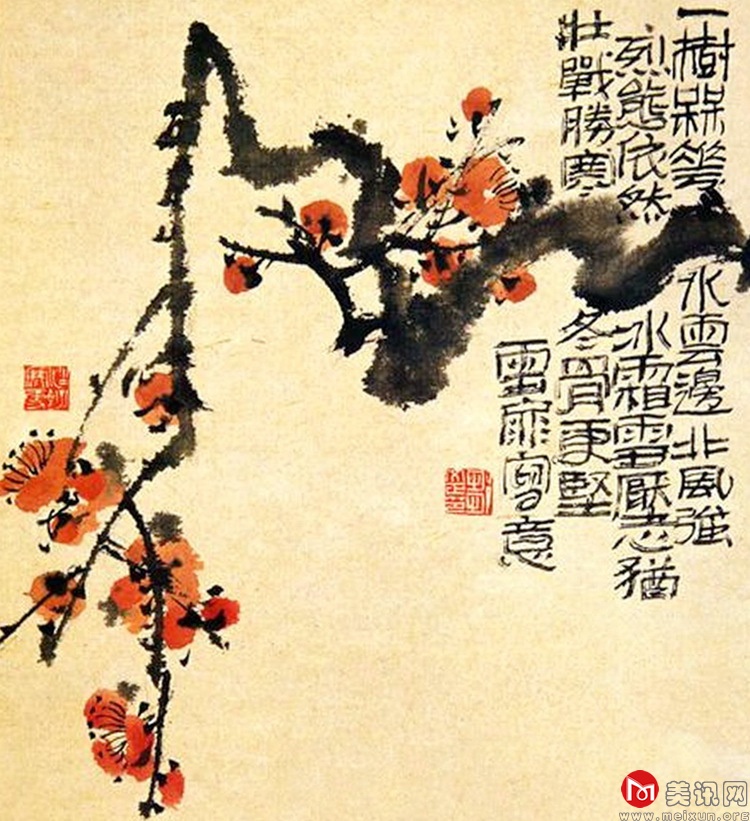 一樹槑花水雲邊北風強
烈態依然冰霜雪壓志猶
壯戰勝寒冬骨更堅
雪寫意
美讯网
www.meixun.org